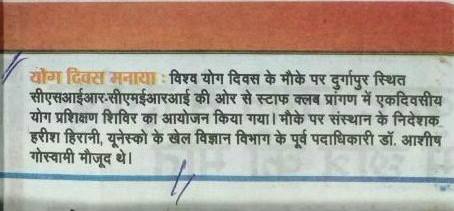 योग दिवस मनाया : विश्व योग दिवस के मौके पर दुर्गापुर स्थित
सीएसआईआर-सीएमईआरआई की ओर से स्टाफ क्लब प्रांगण में एकदिवसीय
योग प्रशिक्षण शिविर का आयोजन किया गया। मौके पर संस्थान के निदेशक
हरीश हिरानी, यूनेस्को के खेल विज्ञान विभाग के पूर्व पदाधिकारी डॉ. आशीष
गोस्वामी मौजूद थे।